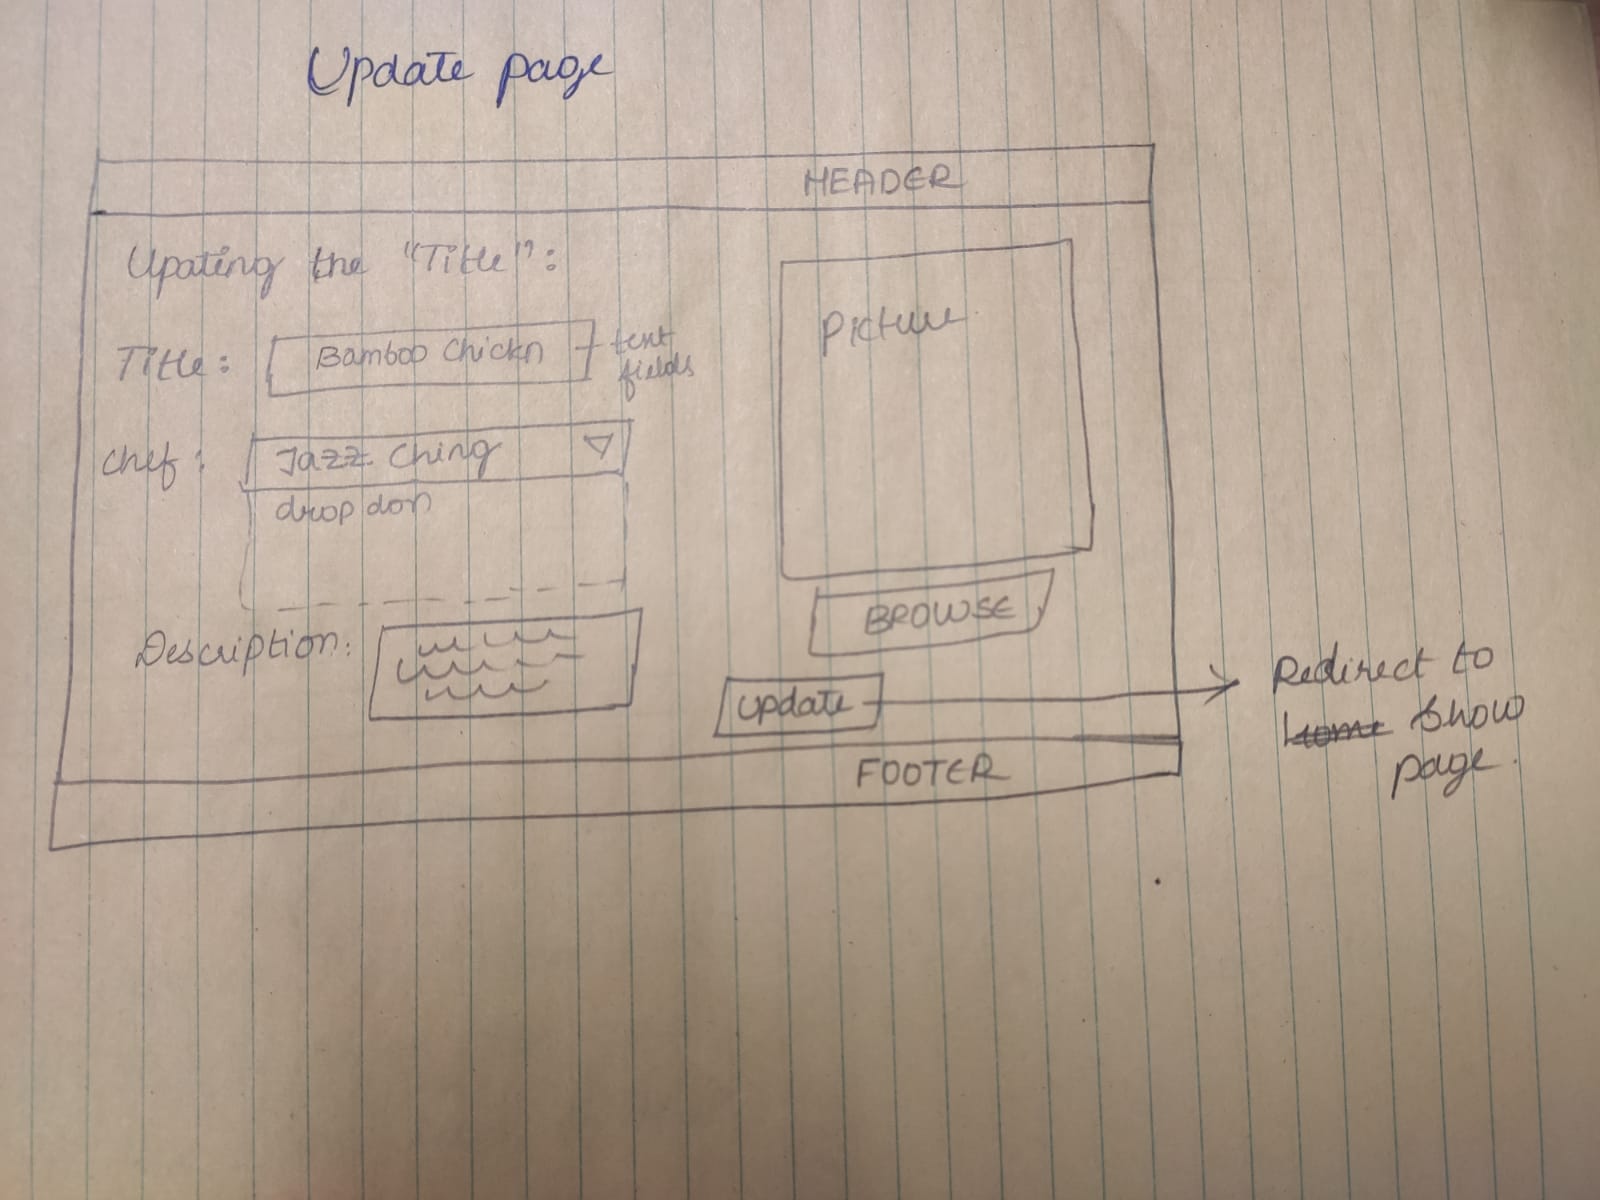 Update page
HEADER
Upating the "Title":
Title: Bamboo Chickn text
fields
Chef: Jazz Ching
drop don
Picture
BROWSE
Description:
Update
Redirect to
home Show
page.
FOOTER